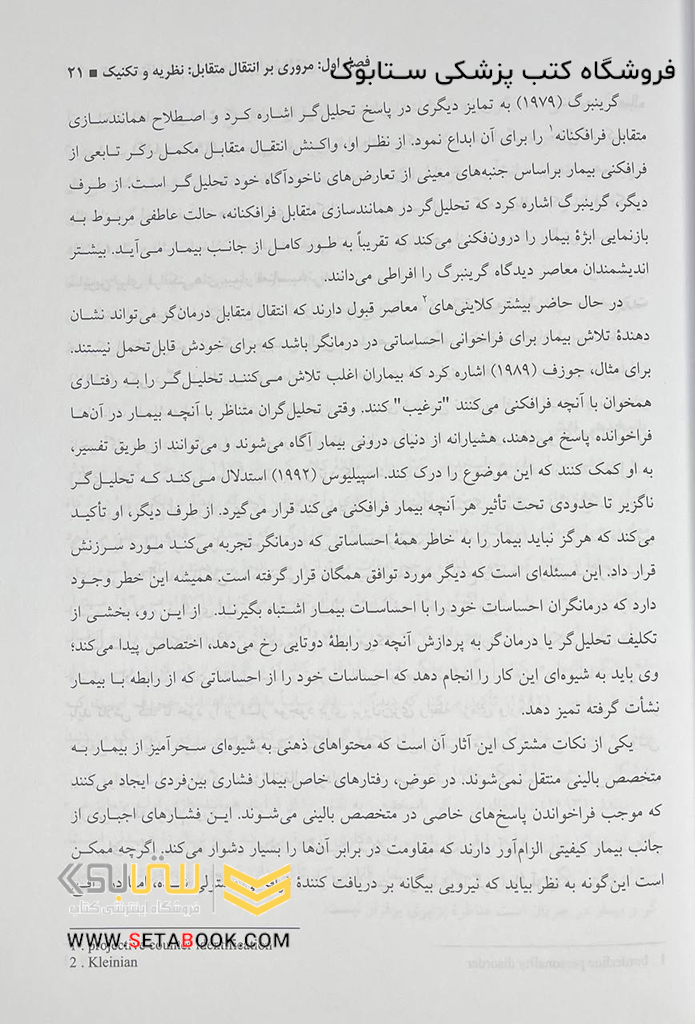 فروشگاه کتب پزشکی ستابوک
فصل اول: مروری بر انتقال متقابل: نظریه و تکنیک ■ ۲۱
گرینبرگ (۱۹۷۹) به تمایز دیگری در پاسخ تحلیل‌گر اشاره کرد و اصطلاح همانندسازی
متقابل فرافکنانه۱ را برای آن ابداع نمود. از نظر او، واکنش انتقال متقابل مکمل رکر تابعی از
فرافکنی بیمار براساس جنبه‌های معینی از تعارض‌های ناخودآگاه خود تحلیل‌گر است. از طرف
دیگر، گرینبرگ اشاره کرد که تحلیل‌گر در همانندسازی متقابل فرافکنانه، حالت عاطفی مربوط به
بازنمایی ابژهٔ بیمار را درون‌فکنی می‌کند که تقریباً به طور کامل از جانب بیمار می‌آید. بیشتر
اندیشمندان معاصر دیدگاه گرینبرگ را افراطی می‌دانند.
در حال حاضر بیشتر کلاینی‌های۲ معاصر قبول دارند که انتقال متقابل درمان‌گر می‌تواند نشان
دهندهٔ تلاش بیمار برای فراخوانی احساساتی در درمانگر باشد که برای خودش قابل‌تحمل نیستند.
برای مثال، جوزف (۱۹۸۹) اشاره کرد که بیماران اغلب تلاش می‌کنند تحلیل‌گر را به رفتاری
همخوان با آنچه فرافکنی می‌کنند "ترغیب" کنند. وقتی تحلیل‌گران متناظر با آنچه بیمار در آن‌ها
فراخوانده پاسخ می‌دهند، هشیارانه از دنیای درونی بیمار آگاه می‌شوند و می‌توانند از طریق تفسیر،
به او کمک کنند که این موضوع را درک کند. اسپیلیوس (۱۹۹۲) استدلال می‌کند که تحلیل‌گر
ناگزیر تا حدودی تحت تأثیر هر آنچه بیمار فرافکنی می‌کند قرار می‌گیرد. از طرف دیگر، او تأکید
می‌کند که هرگز نباید بیمار را به خاطر همهٔ احساساتی که درمانگر تجربه می‌کند مورد سرزنش
قرار داد. این مسئله‌ای است که دیگر مورد توافق همگان قرار گرفته است. همیشه این خطر وجود
دارد که درمانگران احساسات خود را با احساسات بیمار اشتباه بگیرند. از این رو، بخشی از
تکلیف تحلیل‌گر یا درمان‌گر به پردازش آنچه در رابطهٔ دوتایی رخ می‌دهد، اختصاص پیدا می‌کند؛
وی باید به شیوه‌ای این کار را انجام دهد که احساسات خود را از احساساتی که از رابطه با بیمار
نشأت گرفته تمیز دهد.
یکی از نکات مشترک این آثار آن است که محتواهای ذهنی به شیوه‌ای سحرآمیز از بیمار به
متخصص بالینی منتقل نمی‌شوند. در عوض، رفتارهای خاص بیمار فشاری بین‌فردی ایجاد می‌کنند
که موجب فراخواندن پاسخ‌های خاصی در متخصص بالینی می‌شوند. این فشارهای اجباری از
جانب بیمار کیفیتی الزام‌آور دارند که مقاومت در برابر آن‌ها را بسیار دشوار می‌کند. اگرچه ممکن
است این‌گونه به نظر بیاید که نیرویی بیگانه بر دریافت کنندهٔ
ستابوک
فروشگاه اینترنتی کتاب
WWW.SETABOOK.COM
1 . projective counter identification
2 . Kleinian